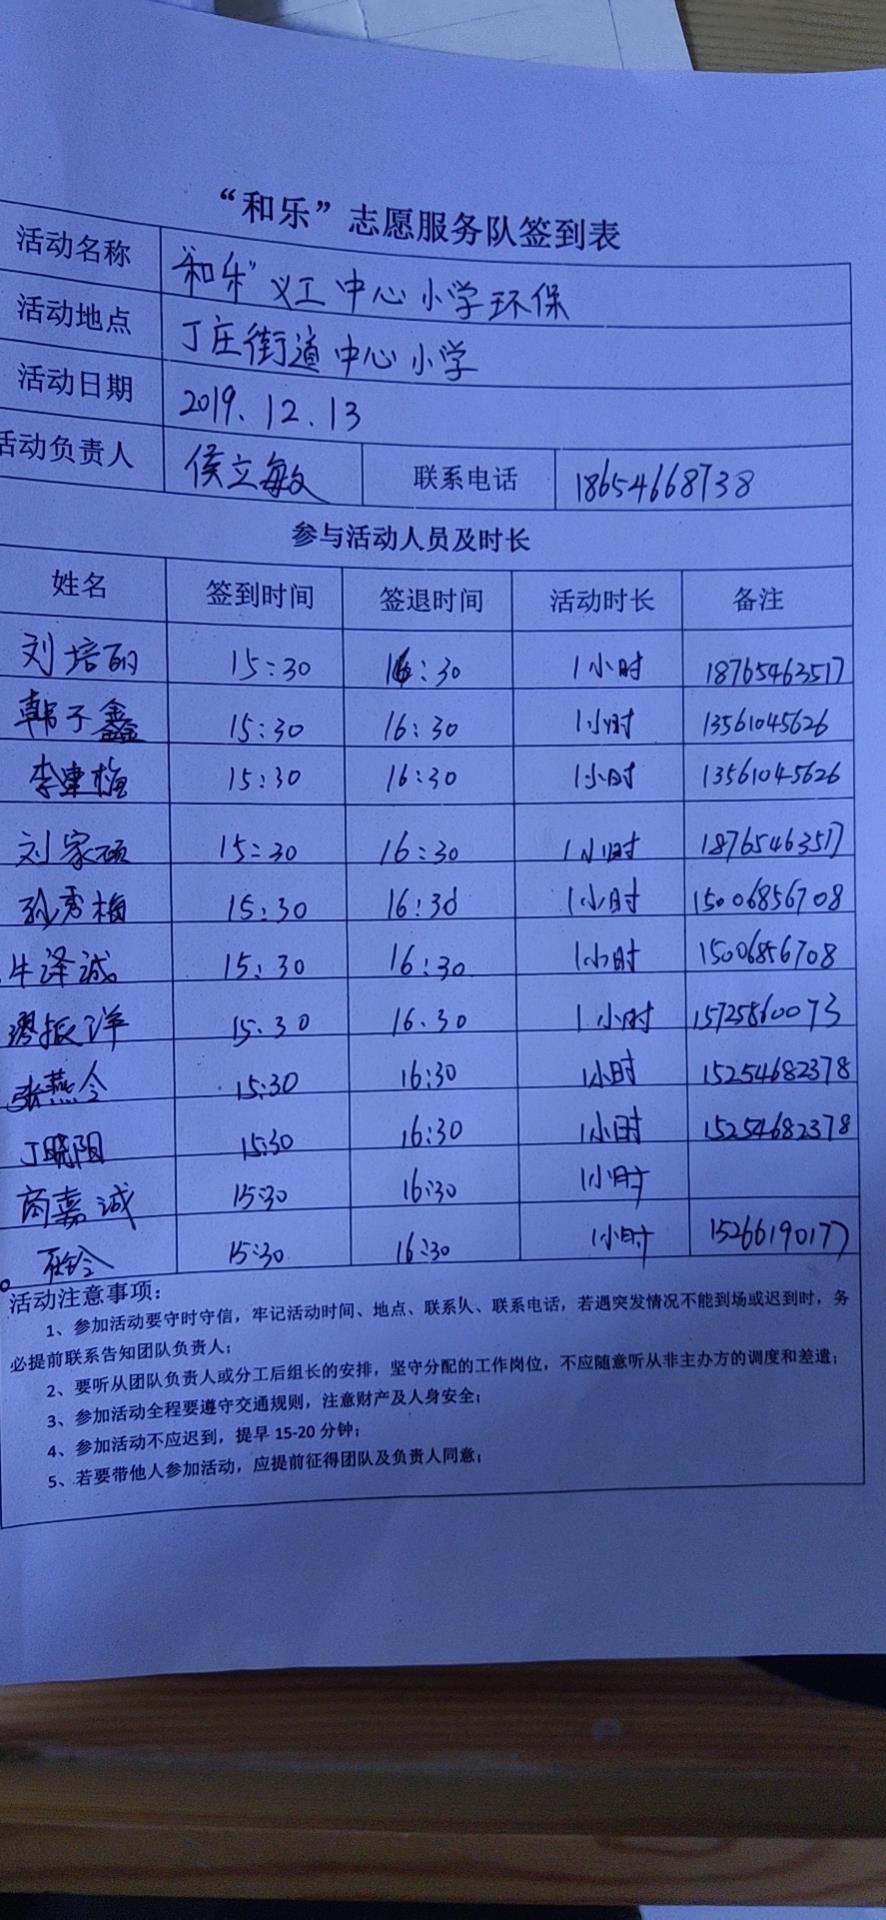 “和乐”志愿服务队签到表
活动名称 “和乐”义工中心小学环保
活动地点 丁庄街道中心小学
活动日期 2019.12.13
活动负责人 侯立敏 联系电话 18654668738
参与活动人员及时长
姓名 签到时间 签退时间 活动时长 备注
刘培丽 15:30 16:30 1小时 18765463517
韩子鑫 15:30 16:30 1小时 13561045626
李建梅 15:30 16:30 1小时 13561045626
刘家硕 15:30 16:30 1小时 18765463517
孙秀梅 15:30 16:30 1小时 15006856708
牛泽诚 15:30 16:30 1小时 15006856708
振洋 15:30 16:30 1小时 15725860073
张燕令 15:30 16:30 1小时 15254682378
丁晓阳 15:30 16:30 1小时 15254682378
商嘉诚 15:30 16:30 1小时
15:30 16:30 1小时 15266190177
活动注意事项：
1、参加活动要守时守信，牢记活动时间、地点、联系人、联系电话，若遇突发情况不能到场或迟到时，务
必提前联系告知团队负责人；
2、要听从团队负责人或分工后组长的安排，坚守分配的工作岗位，不应随意听从非主办方的调度和差遣；
3、参加活动全程要遵守交通规则，注意财产及人身安全；
4、参加活动不应迟到，提早 15-20 分钟；
5、若要带他人参加活动，应提前征得团队及负责人同意；